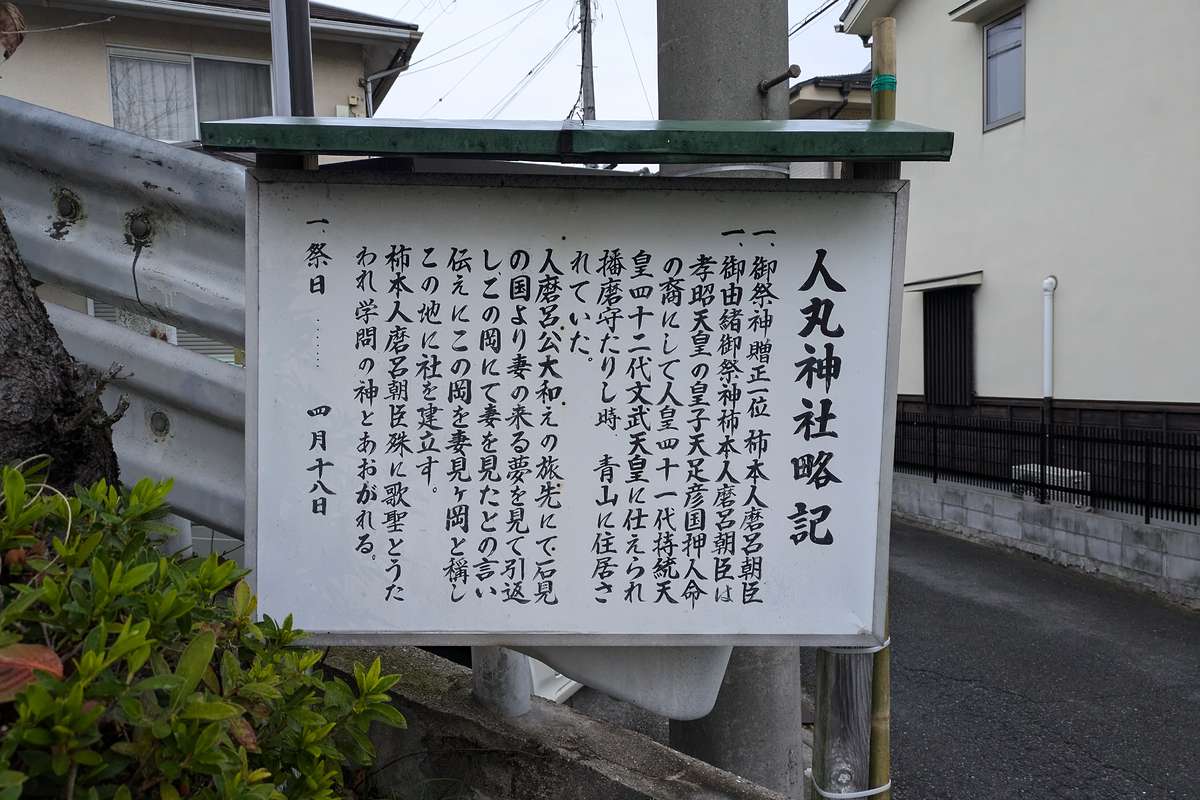 人丸神社略記
一、御祭神 贈正一位 柿本人磨呂朝臣
一、御由緒御祭神柿本人磨呂朝臣は
孝昭天皇の皇子天足彦国押人命
の裔にして人皇四十一代持統天
皇四十二代文武天皇に仕えられ
播磨守たりし時、青山に住居さ
れていた。
人磨呂公大和えの旅先にて石見
の国より妻の来る夢を見て引返
しこの岡にて妻を見たとの言い
伝えにこの岡を妻見ヶ岡と稱し
この地に社を建立す。
柿本人磨呂朝臣殊に歌聖とうた
われ学問の神とあおがれる。
一、祭日……四月十八日